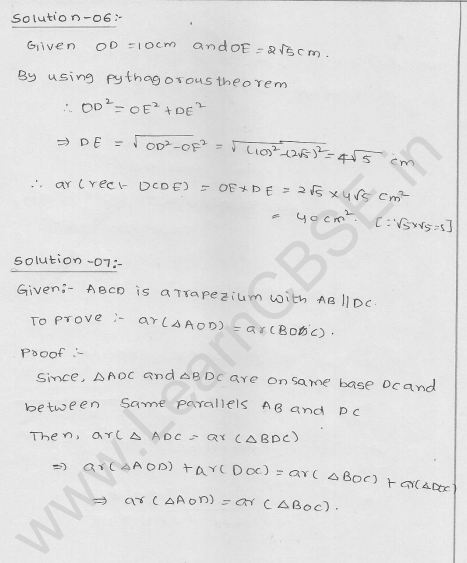 Solution-06:-
Given OD = 10cm and OE = 2√5cm.
By using pythagorous theorem
∴ OD² = OE² + DE²
⇒ DE = √OD²-OE² = √(10)²-(2√5)² = 4√5 cm
∴ ar(rect DCDE) = OE×DE = 2√5 × 4√5 cm²
= 40cm². [∵√5×√5=5]
Solution-07:-
Given:- ABCD is a trapezium with AB∥DC.
To prove :- ar(△AOD) = ar(BOC).
Proof :-
Since, △ADC and △BDC are on same base DC and
between same parallels AB and DC
Then, ar(△ ADC = ar (△BDC)
⇒ ar(△AOD) + ar(DOC) = ar( △BOC) + ar(△DOC)
⇒ ar (△AOD) = ar (△BOC).
www.LearnCBSE.in